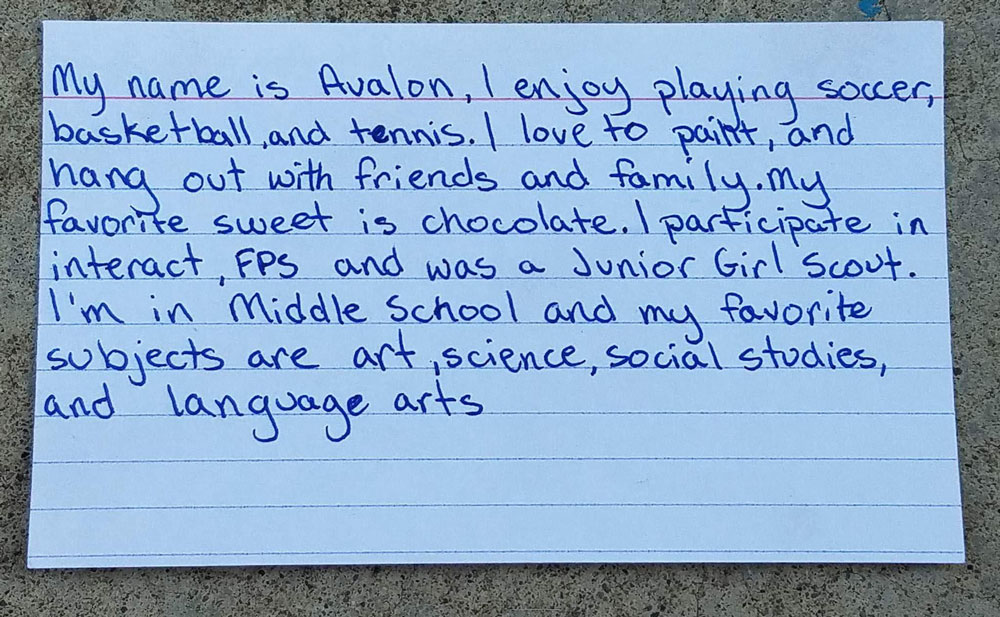 My name is Avalon, I enjoy playing soccer,
basketball, and tennis. I love to paint, and
hang out with friends and family. My
favorite sweet is chocolate. I participate in
interact, FPS and was a Junior Girl Scout.
I'm in Middle School and my favorite
subjects are art, science, social studies,
and language arts